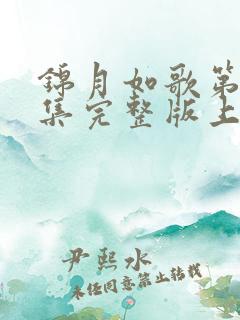 锦月如歌第
集完整版上
尹熙水
未经同意禁止转载